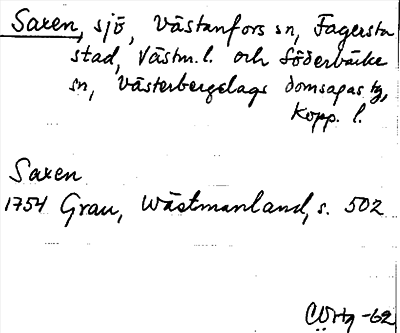 Saxen, sjö, Västanfors sn, Fagersta
stad, Västm. l. och Söderbärke
sn, Västerbergslags domsagas tg,
Kopp. l.
Saxen
1754 Grau, Wästmanland, s. 502
-62